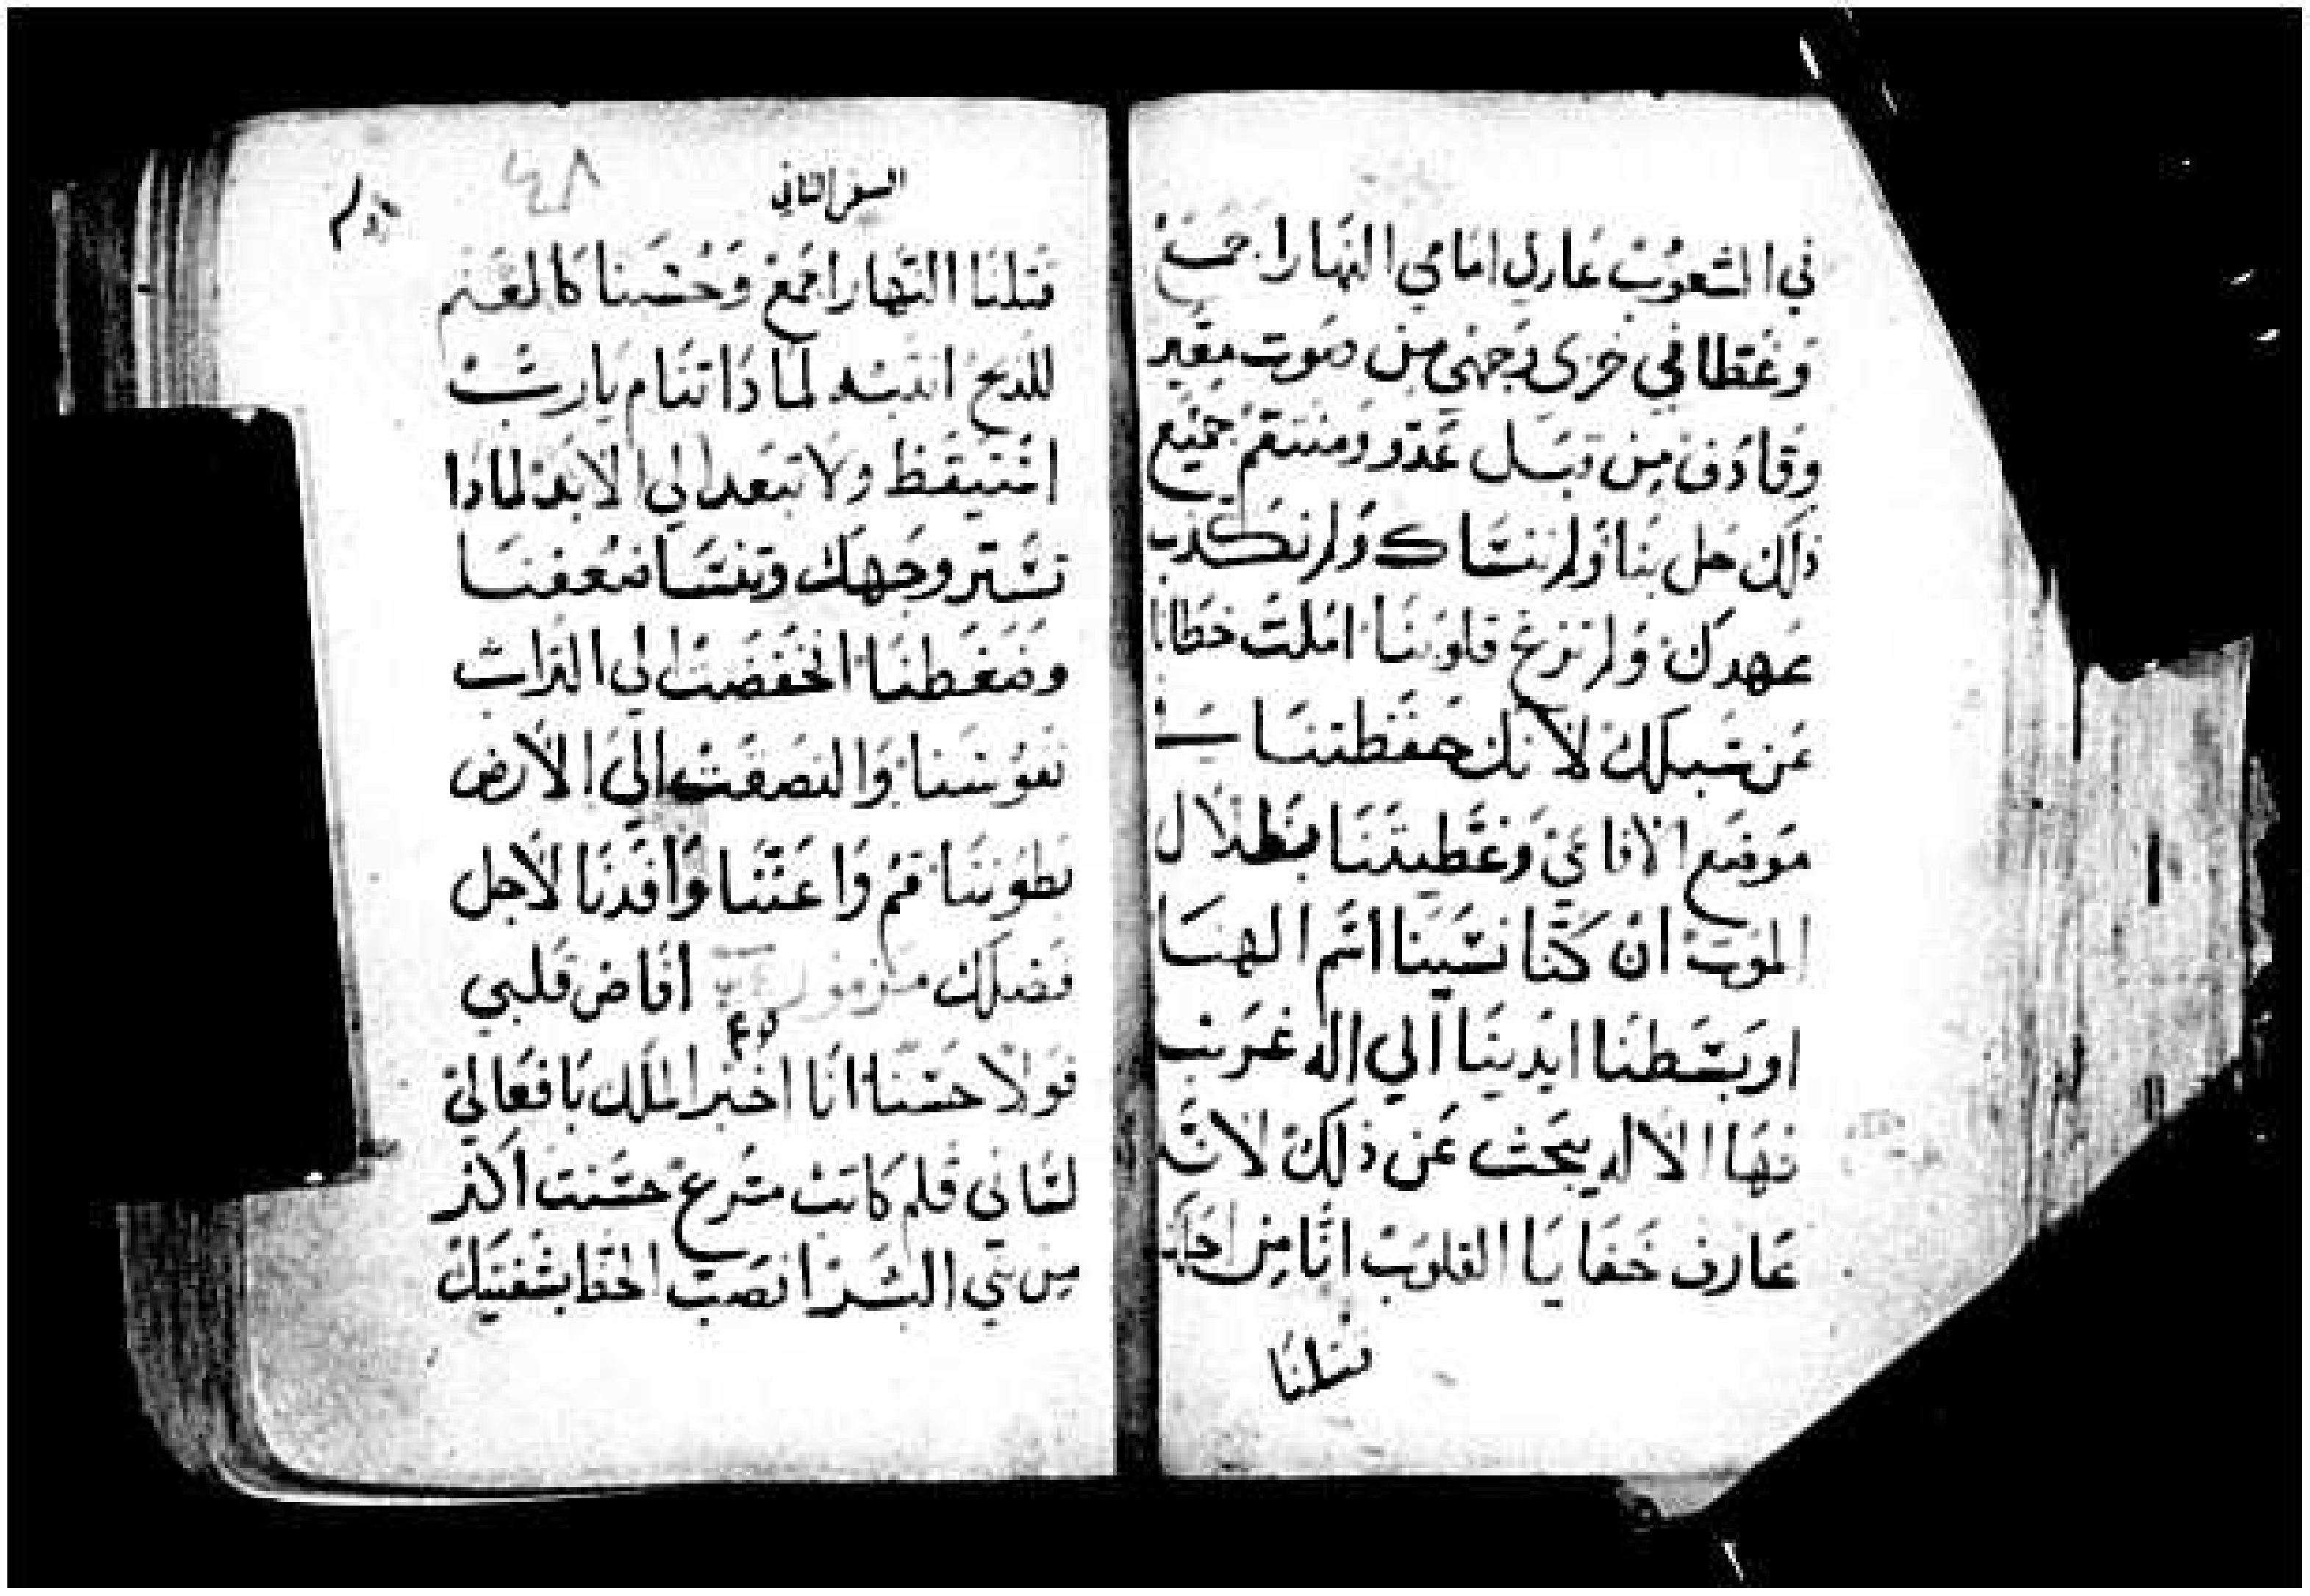 في الشعوب عاري امامي النهار اجمع
وغطاني خزي وجهي من صوت معير
وقادف من قبل عدو ومنتقم جميع
ذلك حل بنا ولم ننساك ولم نكذب
عهدك ولم تزغ قلوبنا املت خطانا
عن سبلك لانك حفظتنا في
موضع الافاعي وغطيتنا بظلال
الموت ان كنا نسينا اسم الهنا
او بسطنا ايدينا الي اله غريب
نها الاله يبحث عن ذلك لانه
عارف خفايا القلوب اننا من اجلك
قتلنا
السفر الثاني
٤٨
قتلنا النهار اجمع وحسبنا كالغنم
للذبح انتبه لماذا تنام يارب
استيقظ ولا تبعد الي الابد لماذا
تستر وجهك وتنسا ضعفنا
وضغطنا انخفضت الي التراب
نفوسنا والتصقت الي الارض
بطوننا قم واعنّا وافدنا لاجل
فضلك مزمور افاض قلبي
٤٤
قولا حسنا انا اخبر الملك بافعالي
لساني قلم كاتب مسرع حسنت اكثر
من بني البشر انصب الحظا بشفتيك